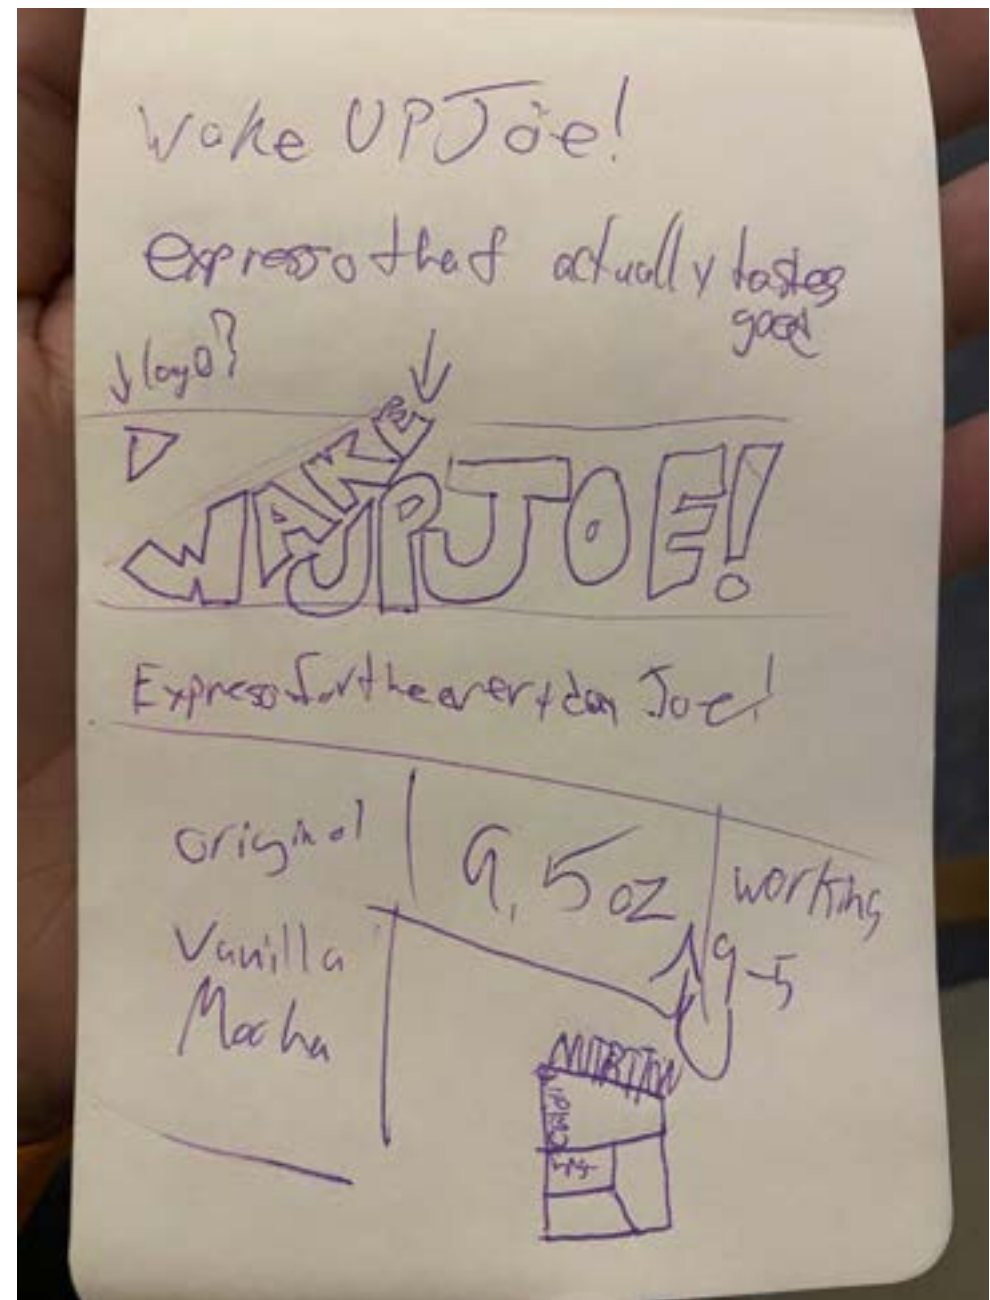 Wake UP Joe!
expresso that actually tastes
good
logo?
WAKE
UP JOE!
Expresso for the everyday Joe!
original
9,5oz
working
9-5
Vanilla
Mocha